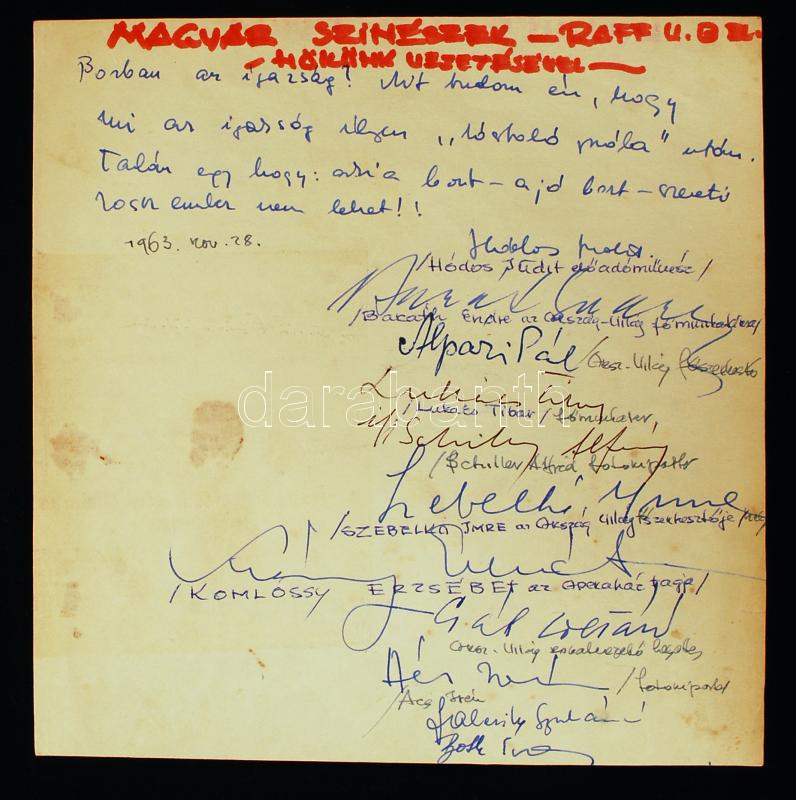 MAGYAR SZINÉSZEK — RAFF U.B EL.
— NÖKÜNK VEZETÉSÉVEL —
Borban az igazság! Mit tudom én, hogy
mi az igazság ilyen „kóstoló próba" után.
Talán egy hogy: aki a bort — a jó bort — szereti
rossz ember nem lehet!!
1963. nov. 28.
Hódos Judit.
/Hódos Judit előadóművész/
/Barath Endre az Ország-Világ főmunkatársa/
Alpári Pál
/Orsz.-Világ
Lukács Tibor
/Lukács Tibor/ főmunkatárs
if Schiller Alfréd
/Schiller Alfréd fotóriporter
Szebelkó Imre
/SZEBELKÓ IMRE az Ország Világ főszerkesztője
/KOMLÓSSY ERZSÉBET az Operaház tagja/
Gál Zoltán
Orsz.-Világ
Ács Irén /fotóriporter/
/Ács Irén
darabanth